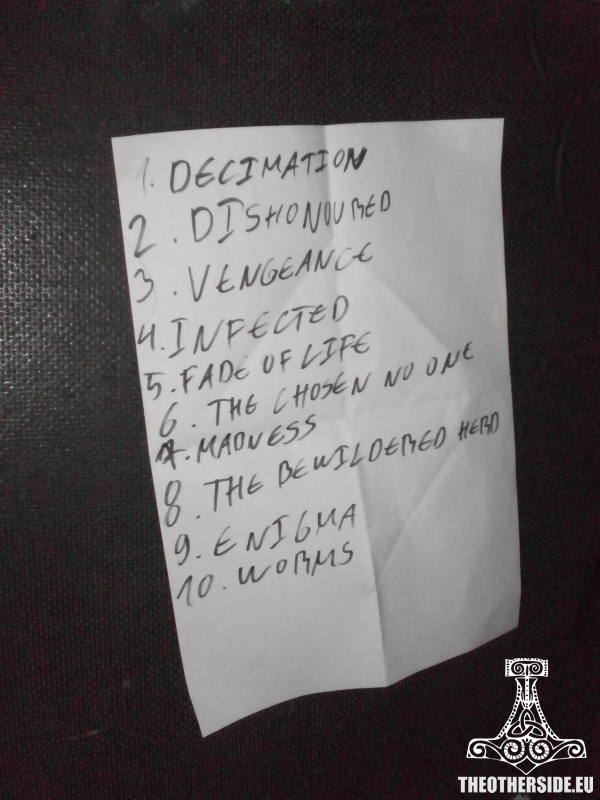 1. DECIMATION
2. DISHONOURED
3. VENGEANCE
4. INFECTED
5. FADE OF LIFE
6. THE CHOSEN NO ONE
7. MADNESS
8. THE BEWILDERED HERD
9. ENIGMA
10. WORMS
THEOTHERSIDE.EU